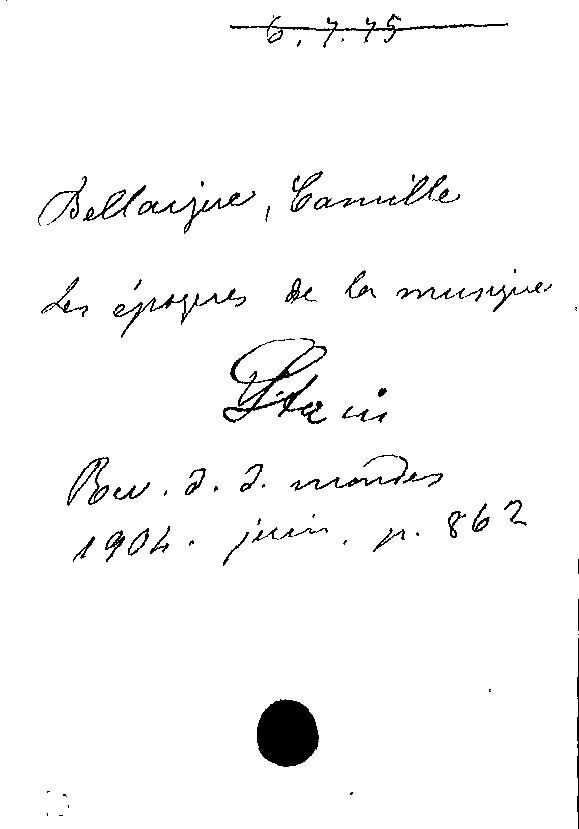 6.7.75
Bellaigue, Camille
Les époques de la musique
Rev. d. d. mondes
1904. juin. p. 862